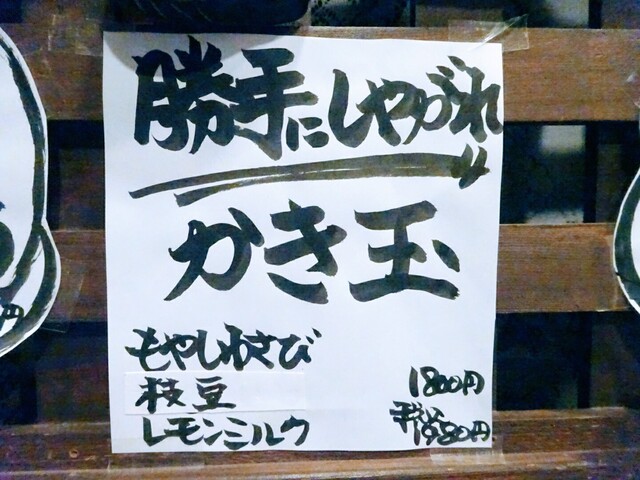 勝手にしやがれ
かき玉
もやしわさび
枝豆
レモンミルク
1800円
税込
1980円
円